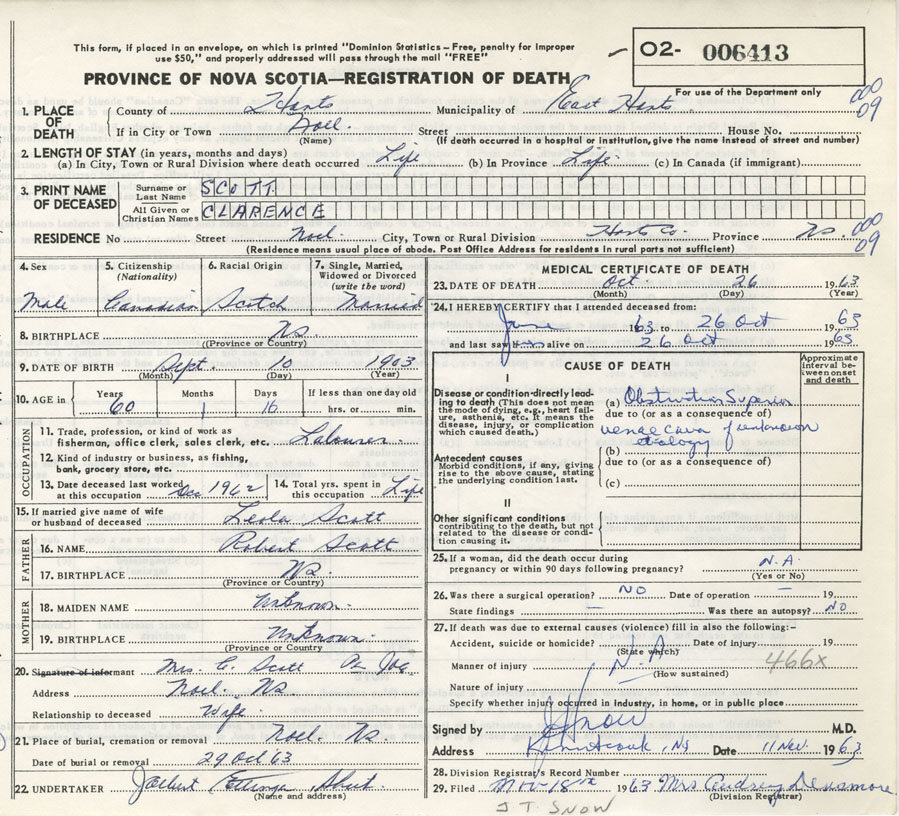 This form, if placed in an envelope, on which is printed "Dominion Statistics – Free, penalty for improper
use $50," and properly addressed will pass through the mail "FREE"
O2- 006413
PROVINCE OF NOVA SCOTIA—REGISTRATION OF DEATH
For use of the Department only
1. PLACE OF DEATH County of Hants Municipality of East Hants 000 09
If in City or Town Noel. Street House No.
(Name) (If death occurred in a hospital or institution, give the name instead of street and number)
2. LENGTH OF STAY (in years, months and days)
(a) In City, Town or Rural Division where death occurred Life (b) In Province Life. (c) In Canada (if immigrant)
3. PRINT NAME OF DECEASED Surname or Last Name SCOTT
All Given or Christian Names CLARENCE
RESIDENCE No Street Noel. City, Town or Rural Division Hants Co. Province NS. 000 09
(Residence means usual place of abode. Post Office Address for residents in rural parts not sufficient)
4. Sex 5. Citizenship (Nationality) 6. Racial Origin 7. Single, Married, Widowed or Divorced (write the word)
Male Canadian Scotch Married
8. BIRTHPLACE NS.
(Province or Country)
9. DATE OF BIRTH Sept. 10 1903
(Month) (Day) (Year)
10. AGE in Years Months Days If less than one day old
60 1 16 hrs. or min.
OCCUPATION
11. Trade, profession or kind of work as
fisherman, office clerk, sales clerk, etc. Labourer.
12. Kind of industry or business, as fishing,
bank, grocery store, etc.
13. Date deceased last worked
at this occupation Dec 1962
14. Total yrs. spent in
this occupation Life
15. If married give name of wife
or husband of deceased Leola Scott
FATHER
16. NAME Robert Scott
17. BIRTHPLACE NS.
(Province or Country)
MOTHER
18. MAIDEN NAME Unknown.
19. BIRTHPLACE Unknown.
(Province or Country)
20. Signature of informant Mrs. C. Scott
Address Noel. NS
Relationship to deceased Wife.
21. Place of burial, cremation or removal Noel. NS.
Date of burial or removal 29 Oct 63
22. UNDERTAKER
(Name and address)
MEDICAL CERTIFICATE OF DEATH
23. DATE OF DEATH Oct. 26 1963
(Month) (Day) (Year)
24. I HEREBY CERTIFY that I attended deceased from:
June 1963 to 26 Oct 1963
and last saw h alive on 26 Oct 1963
CAUSE OF DEATH
Approximate interval between onset and death
I
Disease or condition directly leading to death (This does not mean the mode of dying, e.g., heart failure, asthenia, etc. It means the disease, injury, or complication which caused death.)
(a) Obstruction Superior
due to (or as a consequence of)
venae cava of unknown
etiology
(b)
due to (or as a consequence of)
(c)
Antecedent causes
Morbid conditions, if any, giving rise to the above cause, stating the underlying condition last.
II
Other significant conditions
contributing to the death, but not related to the disease or condition causing it.
25. If a woman, did the death occur during
pregnancy or within 90 days following pregnancy? N.A.
(Yes or No)
26. Was there a surgical operation? NO Date of operation – 19
State findings – Was there an autopsy? NO
27. If death was due to external causes (violence) fill in also the following:–
Accident, suicide or homicide? Date of injury 19
(State which)
Manner of injury N.A 466x
(How sustained)
Nature of injury
Specify whether injury occurred in industry, in home, or in public place
Signed by J Snow M.D.
Address Kennetcook, NS Date 11 Nov. 1963
28. Division Registrar's Record Number
29. Filed Nov 18th 1963 Mrs Audrey Densmore
(Division Registrar)
J T. SNOW